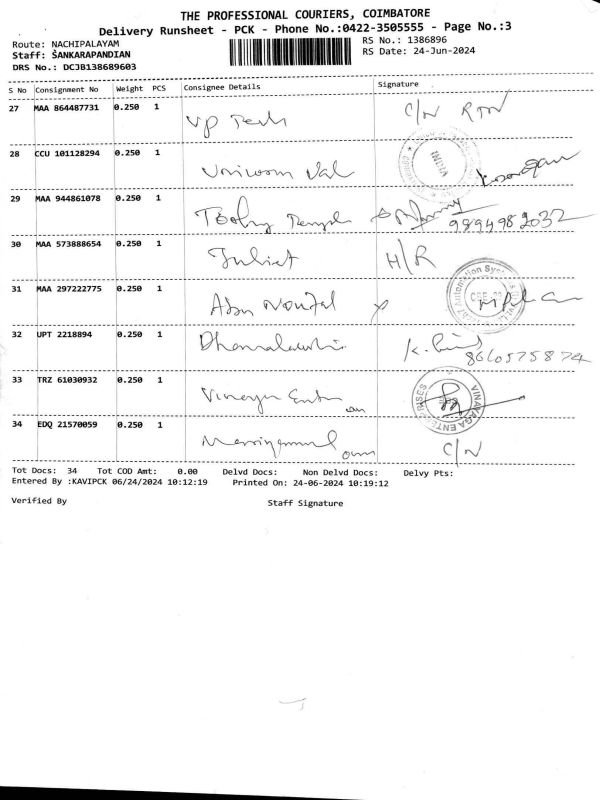 THE PROFESSIONAL COURIERS, COIMBATORE
Delivery Runsheet - PCK - Phone No.:0422-3505555 - Page No.:3
Route: NACHIPALAYAM
RS No.: 1386896
Staff: SANKARAPANDIAN
RS Date: 24-Jun-2024
DRS No.: DCJB138689603
S No Consignment No Weight PCS Consignee Details Signature
27 MAA 864487731 0.250 1 VP Tech C/N RTN
28 CCU 101128294 0.250 1 Val INDIA
29 MAA 944861078 0.250 1 9894982032
30 MAA 573888654 0.250 1 Juliet H/R
31 MAA 297222775 0.250 1 Abu Noufal
32 UPT 2218894 0.250 1 8660575874
33 TRZ 61030932 0.250 1 VINAYAGA ENTERPRISES
34 EDQ 21570059 0.250 1 C/N
Tot Docs: 34 Tot COD Amt: 0.00 Delvd Docs: Non Delvd Docs: Delvy Pts:
Entered By :KAVIPCK 06/24/2024 10:12:19 Printed On: 24-06-2024 10:19:12
Verified By Staff Signature